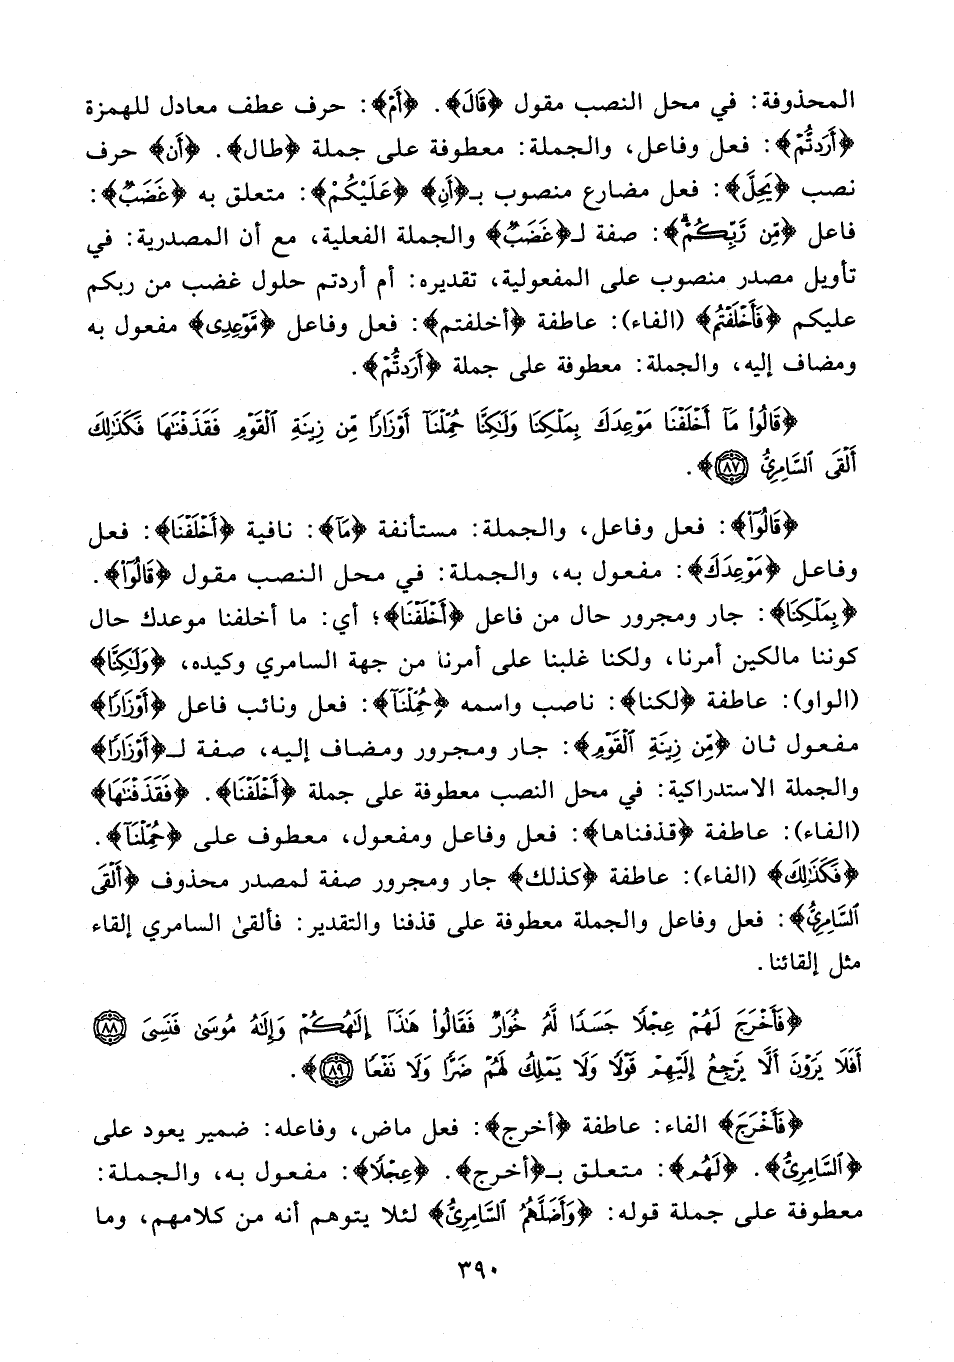 المحذوفة: في محل النصب مقول ﴿قَالَ﴾. ﴿أَمْ﴾: حرف عطف معادل للهمزة
﴿أَرَدتُّمْ﴾: فعل وفاعل، والجملة: معطوفة على جملة ﴿طال﴾. ﴿أَن﴾ حرف
نصب ﴿يَحِلَّ﴾: فعل مضارع منصوب بـ﴿أَن﴾ ﴿عَلَيْكُمْ﴾: متعلق به ﴿غَضَبٌ﴾:
فاعل ﴿مِّن رَّبِّكُمْ﴾: صفة لـ﴿غَضَبٌ﴾ والجملة الفعلية، مع أن المصدرية: في
تأويل مصدر منصوب على المفعولية، تقديره: أم أردتم حلول غضب من ربكم
عليكم ﴿فَأَخْلَفْتُم﴾ (الفاء): عاطفة ﴿أخلفتم﴾: فعل وفاعل ﴿مَّوْعِدِى﴾ مفعول به
ومضاف إليه، والجملة: معطوفة على جملة ﴿أَرَدتُّمْ﴾.
﴿قَالُوا۟ مَآ أَخْلَفْنَا مَوْعِدَكَ بِمَلْكِنَا وَلَٰكِنَّا حُمِّلْنَآ أَوْزَارًا مِّن زِينَةِ ٱلْقَوْمِ فَقَذَفْنَٰهَا فَكَذَٰلِكَ
أَلْقَى ٱلسَّامِرِىُّ ٨٧﴾.
﴿قَالُوا۟﴾: فعل وفاعل، والجملة: مستأنفة ﴿مَآ﴾: نافية ﴿أَخْلَفْنَا﴾: فعل
وفاعل ﴿مَوْعِدَكَ﴾: مفعول به، والجملة: في محل النصب مقول ﴿قَالُوا۟﴾.
﴿بِمَلْكِنَا﴾: جار ومجرور حال من فاعل ﴿أَخْلَفْنَا﴾؛ أي: ما أخلفنا موعدك حال
كوننا مالكين أمرنا، ولكنا غلبنا على أمرنا من جهة السامري وكيده، ﴿وَلَٰكِنَّا﴾
(الواو): عاطفة ﴿لكنا﴾: ناصب واسمه ﴿حُمِّلْنَآ﴾: فعل ونائب فاعل ﴿أَوْزَارًا﴾
مفعول ثان ﴿مِّن زِينَةِ ٱلْقَوْمِ﴾: جار ومجرور ومضاف إليه، صفة لـ﴿أَوْزَارًا﴾
والجملة الاستدراكية: في محل النصب معطوفة على جملة ﴿أَخْلَفْنَا﴾. ﴿فَقَذَفْنَٰهَا﴾
(الفاء): عاطفة ﴿قذفناها﴾: فعل وفاعل ومفعول، معطوف على ﴿حُمِّلْنَآ﴾.
﴿فَكَذَٰلِكَ﴾ (الفاء): عاطفة ﴿كذلك﴾ جار ومجرور صفة لمصدر محذوف ﴿أَلْقَى
ٱلسَّامِرِىُّ﴾: فعل وفاعل والجملة معطوفة على قذفنا والتقدير: فألقىٰ السامري إلقاء
مثل إلقائنا.
﴿فَأَخْرَجَ لَهُمْ عِجْلًا جَسَدًا لَّهُۥ خُوَارٌ فَقَالُوا۟ هَٰذَآ إِلَٰهُكُمْ وَإِلَٰهُ مُوسَىٰ فَنَسِىَ ٨٨
أَفَلَا يَرَوْنَ أَلَّا يَرْجِعُ إِلَيْهِمْ قَوْلًا وَلَا يَمْلِكُ لَهُمْ ضَرًّا وَلَا نَفْعًا ٨٩﴾.
﴿فَأَخْرَجَ﴾ الفاء: عاطفة ﴿أخرج﴾: فعل ماض، وفاعله: ضمير يعود على
﴿ٱلسَّامِرِىُّ﴾. ﴿لَهُمْ﴾: متعلق بـ﴿أخرج﴾. ﴿عِجْلًا﴾: مفعول به، والجملة:
معطوفة على جملة قوله: ﴿وَأَضَلَّهُمُ ٱلسَّامِرِىُّ﴾ لئلا يتوهم أنه من كلامهم، وما
٣٩٠